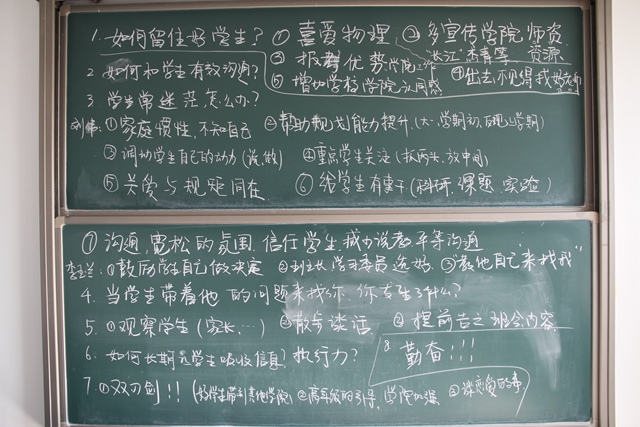 1. 如何留住好学生? ①喜爱物理 ②多宣传学院师资
"长江" "杰青"等 资源
③ 报考优势学院
2. 如何和学生有效沟通? ⑤ 增加学校学院认同感 ④出去不见得我好
3 学生常迷茫怎么办?
①家庭惯性,不知自己 ②帮助规划能力提升(大一学期初,
③调动学生自己的动力(说,做) ④重点学生关注(抓两头,放中间)
⑤关爱与规矩同在 ⑥给学生有事干(科研,课题,实验)
⑦沟通,宽松的氛围,信任学生,减少说教,平等沟通
①鼓励学生自己做决定 ②班长,学习委员选好 ③"教他自己"来找我"
4. 当学生带着他的问题来找你,你产生了什么?
5. ①观察学生(家长,…) ②散步谈话 ③提前告之班会内容
6. 如何长期是学生吸收信息?执行力? 8. 勤奋!!!
7. ①双刃剑!! (给学生带到其他学院) ②高年级的引导,学院加强 ③谈恋爱的事